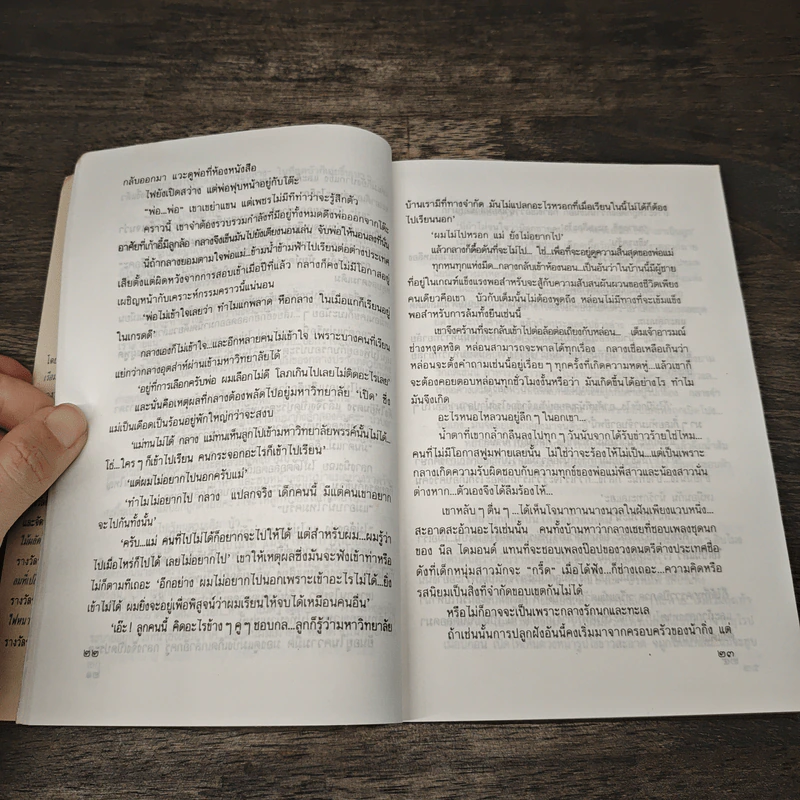 กลับออกมา แวะดูพ่อที่ห้องหนังสือ
ไฟยังเปิดสว่าง แต่พ่อฟุบหน้าอยู่กับโต๊ะ
"พ่อ...พ่อ" เขาเขย่าแขน แต่เพชรไม่มีทีท่าว่าจะรู้สึกตัว
คราวนี้ เขาจำต้องรวบรวมกำลังที่มีอยู่ทั้งหมดดึงพ่อออกจากโต๊ะ
อาศัยที่เก้าอี้มีลูกล้อ กลางจึงเข็นมันไปยังเตียงนอนเล่น จับพ่อให้นอนลงที่นั่น
นี่ถ้ากลางยอมตามใจพ่อแม่...ข้ามน้ำข้ามฟ้าไปเรียนต่อต่างประเทศ
เสียตั้งแต่ผิดหวังจากการสอบเข้าเมื่อปีที่แล้ว กลางก็คงไม่มีโอกาสอยู่
เผชิญหน้ากับเคราะห์กรรมคราวนี้แน่นอน
'พ่อไม่เข้าใจเลยว่า ทำไมแกพลาด หือกลาง ในเมื่อแกก็เรียนอยู่
ในเกรดดี'
กลางเองก็ไม่เข้าใจ...และอีกหลายคนไม่เข้าใจ เพราะบางคนที่เรียน
แย่กว่ากลางอุตส่าห์ผ่านเข้ามหาวิทยาลัยได้
'อยู่ที่การเลือกครับพ่อ ผมเลือกไม่ดี โลภเกินไปเลยไม่ติดอะไรเลย'
และนั่นคือเหตุผลที่กลางต้องพลัดไปอยู่มหาวิทยาลัย 'เปิด' ซึ่ง
แม่เป็นเดือดเป็นร้อนอยู่พักใหญ่กว่าจะสงบ
'แม่ทนไม่ได้ กลาง แม่ทนเห็นลูกไปเข้ามหาวิทยาลัยพรรค์นั้นไม่ได้...
โธ่...ใคร ๆ ก็เข้าไปเรียน คนกระจอกอะไรก็เข้าไปเรียน'
'แต่ผมไม่อยากไปนอกครับแม่'
'ทำไมไม่อยากไป กลาง แปลกจริง เด็กคนนี้ มีแต่คนเขาอยาก
จะไปกันทั้งนั้น'
'ครับ...แม่ คนที่ไปไม่ได้ก็อยากจะไปให้ได้ แต่สำหรับผม...ผมรู้ว่า
ไปเมื่อไหร่ก็ไปได้ เลยไม่อยากไป' เขาให้เหตุผลซึ่งมันจะฟังเข้าท่าหรือ
ไม่ก็ตามทีเถอะ 'อีกอย่าง ผมไม่อยากไปนอกเพราะเข้าอะไรไม่ได้...ยิ่ง
เข้าไม่ได้ ผมยิ่งจะอยู่เพื่อพิสูจน์ว่าผมเรียนให้จบได้เหมือนคนอื่น'
'เอ๊ะ! ลูกคนนี้ คิดอะไรข้าง ๆ คู ๆ ชอบกล...ลูกก็รู้ว่ามหาวิทยาลัย
๒๒
บ้านเรามีที่ทางจำกัด มันไม่แปลกอะไรหรอกที่เมื่อเรียนในนี้ไม่ได้ก็ต้อง
ไปเรียนนอก'
'ผมไม่ไปหรอก แม่ ยังไม่อยากไป'
แล้วกลางก็ดื้อดันที่จะไม่ไป... โธ่...เพื่อที่จะอยู่ดูความสิ้นสุดของพ่อแม่
ทุกหนทุกแห่งมืด...กลางกลับเข้าห้องนอน...เป็นอันว่าในบ้านนี้มีผู้ชาย
ที่อยู่ในเกณฑ์แข็งแรงพอสำหรับจะสู้กับความสับสนผันผวนของชีวิตเพียง
คนเดียวคือเขา บัวกับเต็มนั้นไม่ต้องพูดถึง หล่อนไม่มีทางที่จะเข้มแข็ง
พอสำหรับการล้มทั้งยืนเช่นนี้
เขาจึงคร้านที่จะกลับเข้าไปต่อล้อต่อเถียงกับหล่อน... เต็มเจ้าอารมณ์
ช่างหงุดหงิด หล่อนสามารถจะพาลได้ทุกเรื่อง กลางเชื่อเหลือเกินว่า
หล่อนจะตั้งคำถามเช่นนี้อยู่เรื่อย ๆ ทุกครั้งที่เกิดความหดหู่...แล้วเขาก็
จะต้องคอยตอบหล่อนทุกชั่วโมงงั้นหรือว่า มันเกิดขึ้นได้อย่างไร ทำไม
มันจึงเกิด
อะไรหนอไหลวนอยู่ลึก ๆ ในอกเขา...
น้ำตาที่เขากล้ำกลืนลงไปทุก ๆ วันนับจากได้รับข่าวร้ายใช่ไหม...
คนที่ไม่มีโอกาสฟูมฟายเลยนั้น ไม่ใช่ว่าจะร้องไห้ไม่เป็น...แต่เป็นเพราะ
กลางเกิดความรับผิดชอบกับความทุกข์ของพ่อแม่พี่สาวและน้องสาวนั่น
ต่างหาก...ตัวเองจึงได้ลืมร้องไห้...
เขาหลับ ๆ ตื่น ๆ ...ได้เห็นโจนาทานนางนวลในฝันเพียงแวบหนึ่ง...
สะอาดสะอ้านอะไรเช่นนั้น คนทั้งบ้านหาว่ากลางเชยที่ชอบเพลงชุดนก
ของ นีล ไดมอนด์ แทนที่จะชอบเพลงป๊อปของวงดนตรีต่างประเทศชื่อ
ดังที่เด็กหนุ่มสาวมักจะ "กรี๊ด" เมื่อได้ฟัง...ก็ช่างเถอะ...ความคิดหรือ
รสนิยมเป็นสิ่งที่จำกัดขอบเขตกันไม่ได้
หรือไม่ก็อาจจะเป็นเพราะกลางรักนกและทะเล
ถ้าเช่นนั้นการปลูกฝังอันนี้คงเริ่มมาจากครอบครัวของน้ากิ่ง แต่
๒๓